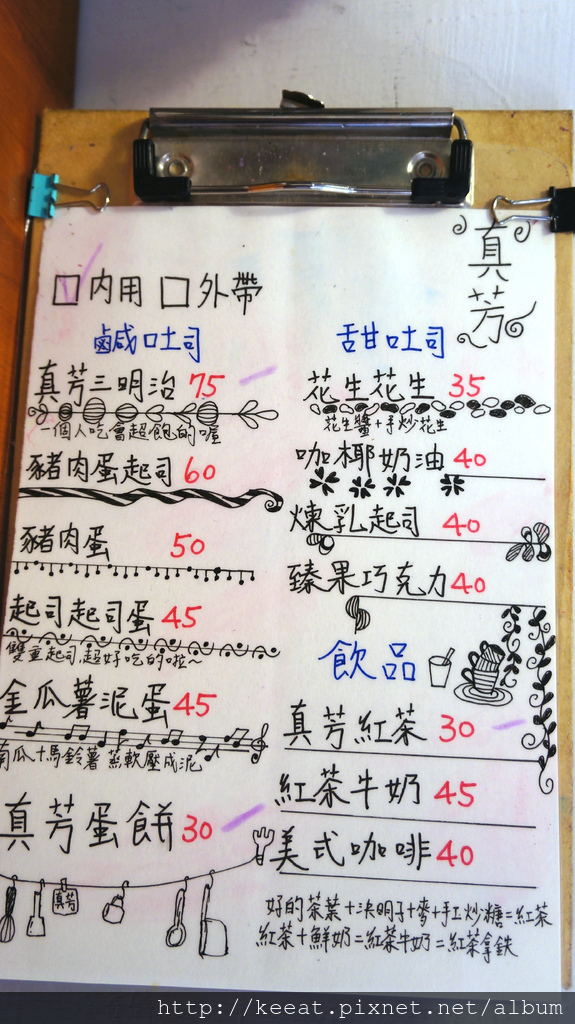 真芳
□內用 □外帶
鹹吐司
真芳三明治 75
一個人吃會超飽的喔
豬肉蛋起司 60
豬肉蛋 50
起司起司蛋 45
雙重起司,超好吃的啦~
金瓜薯泥蛋 45
南瓜+馬鈴薯 蒸軟壓成泥
真芳蛋餅 30
真芳
甜吐司
花生花生 35
花生醬+手炒花生
咖椰奶油 40
煉乳起司 40
臻果巧克力 40
飲品
真芳紅茶 30
紅茶牛奶 45
美式咖啡 40
好的茶葉+決明子+麥+手工炒糖=紅茶
紅茶+鮮奶=紅茶牛奶=紅茶拿鉄
http://keeat.pixnet.net/album